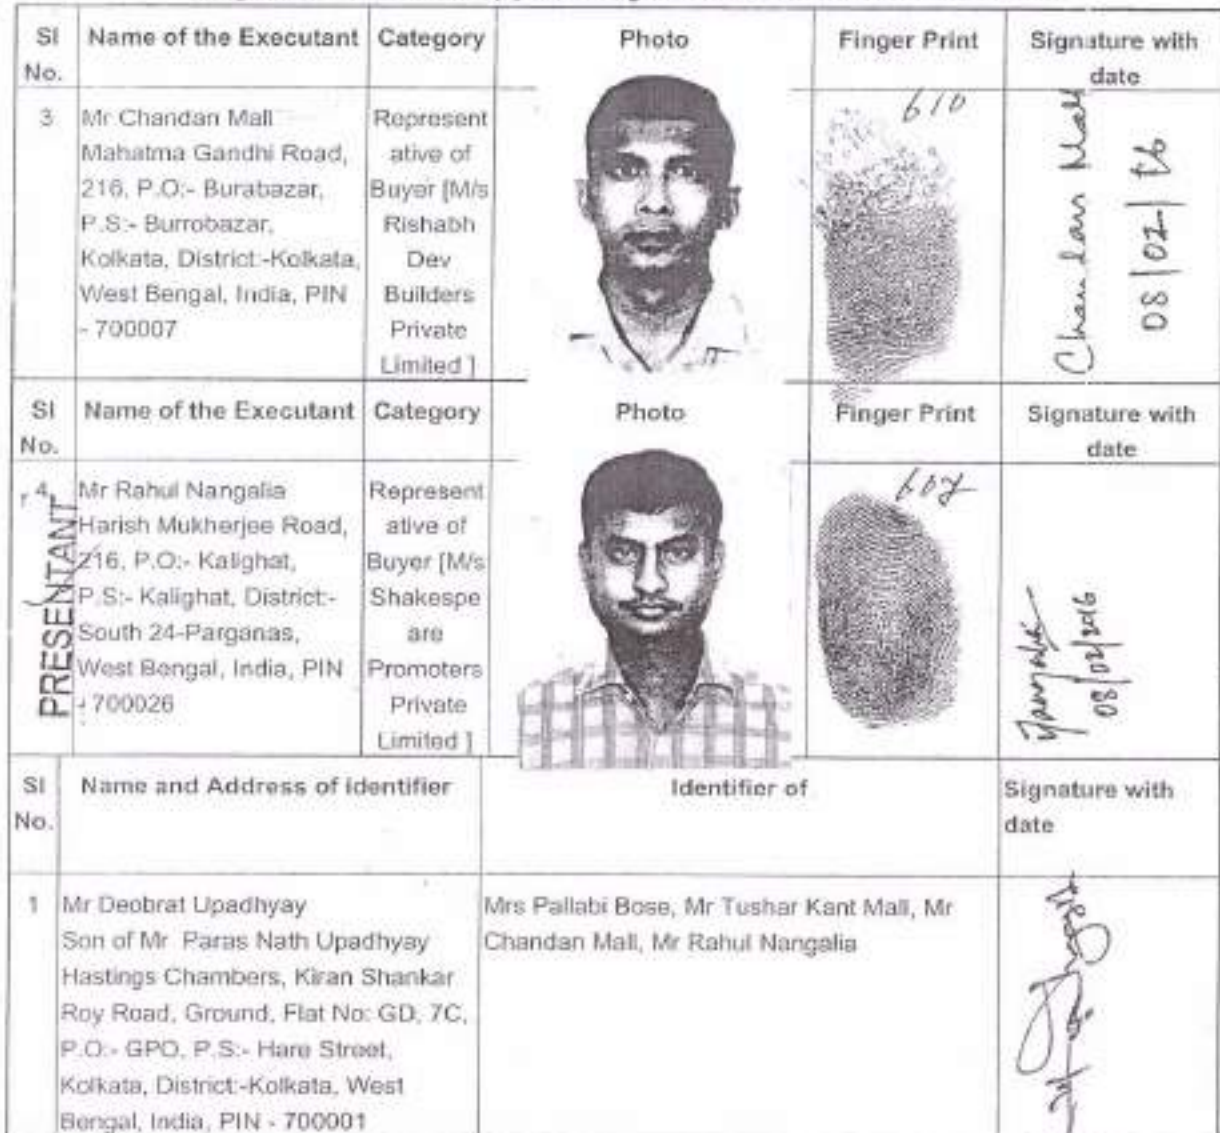 Sl No.
Name of the Executant
Category
Photo
Finger Print
Signature with date
3
Mr Chandan Mall
Mahatma Gandhi Road,
216, P.O:- Burabazar,
P.S:- Burrobazar,
Kolkata, District:-Kolkata,
West Bengal, India, PIN
- 700007
Represent
ative of
Buyer [M/s
Rishabh
Dev
Builders
Private
Limited ]
610
Chandan Mall
08/02/16
Sl No.
Name of the Executant
Category
Photo
Finger Print
Signature with date
4
PRESENTANT
Mr Rahul Nangalia
Harish Mukherjee Road,
216, P.O:- Kalighat,
P.S:- Kalighat, District:-
South 24-Parganas,
West Bengal, India, PIN
- 700026
Represent
ative of
Buyer [M/s
Shakespe
are
Promoters
Private
Limited ]
08/02/2016
Sl No.
Name and Address of identifier
Identifier of
Signature with date
1
Mr Deobrat Upadhyay
Son of Mr Paras Nath Upadhyay
Hastings Chambers, Kiran Shankar
Roy Road, Ground, Flat No: GD, 7C,
P.O:- GPO, P.S:- Hare Street,
Kolkata, District:-Kolkata, West
Bengal, India, PIN - 700001
Mrs Pallabi Bose, Mr Tushar Kant Mall, Mr
Chandan Mall, Mr Rahul Nangalia